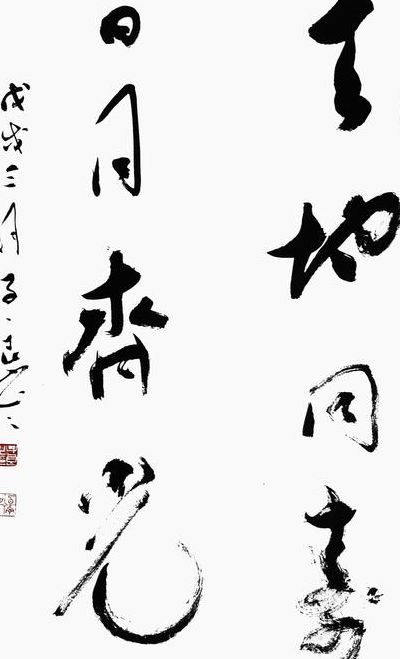 天地同寿
日月齊光
戊戌三月